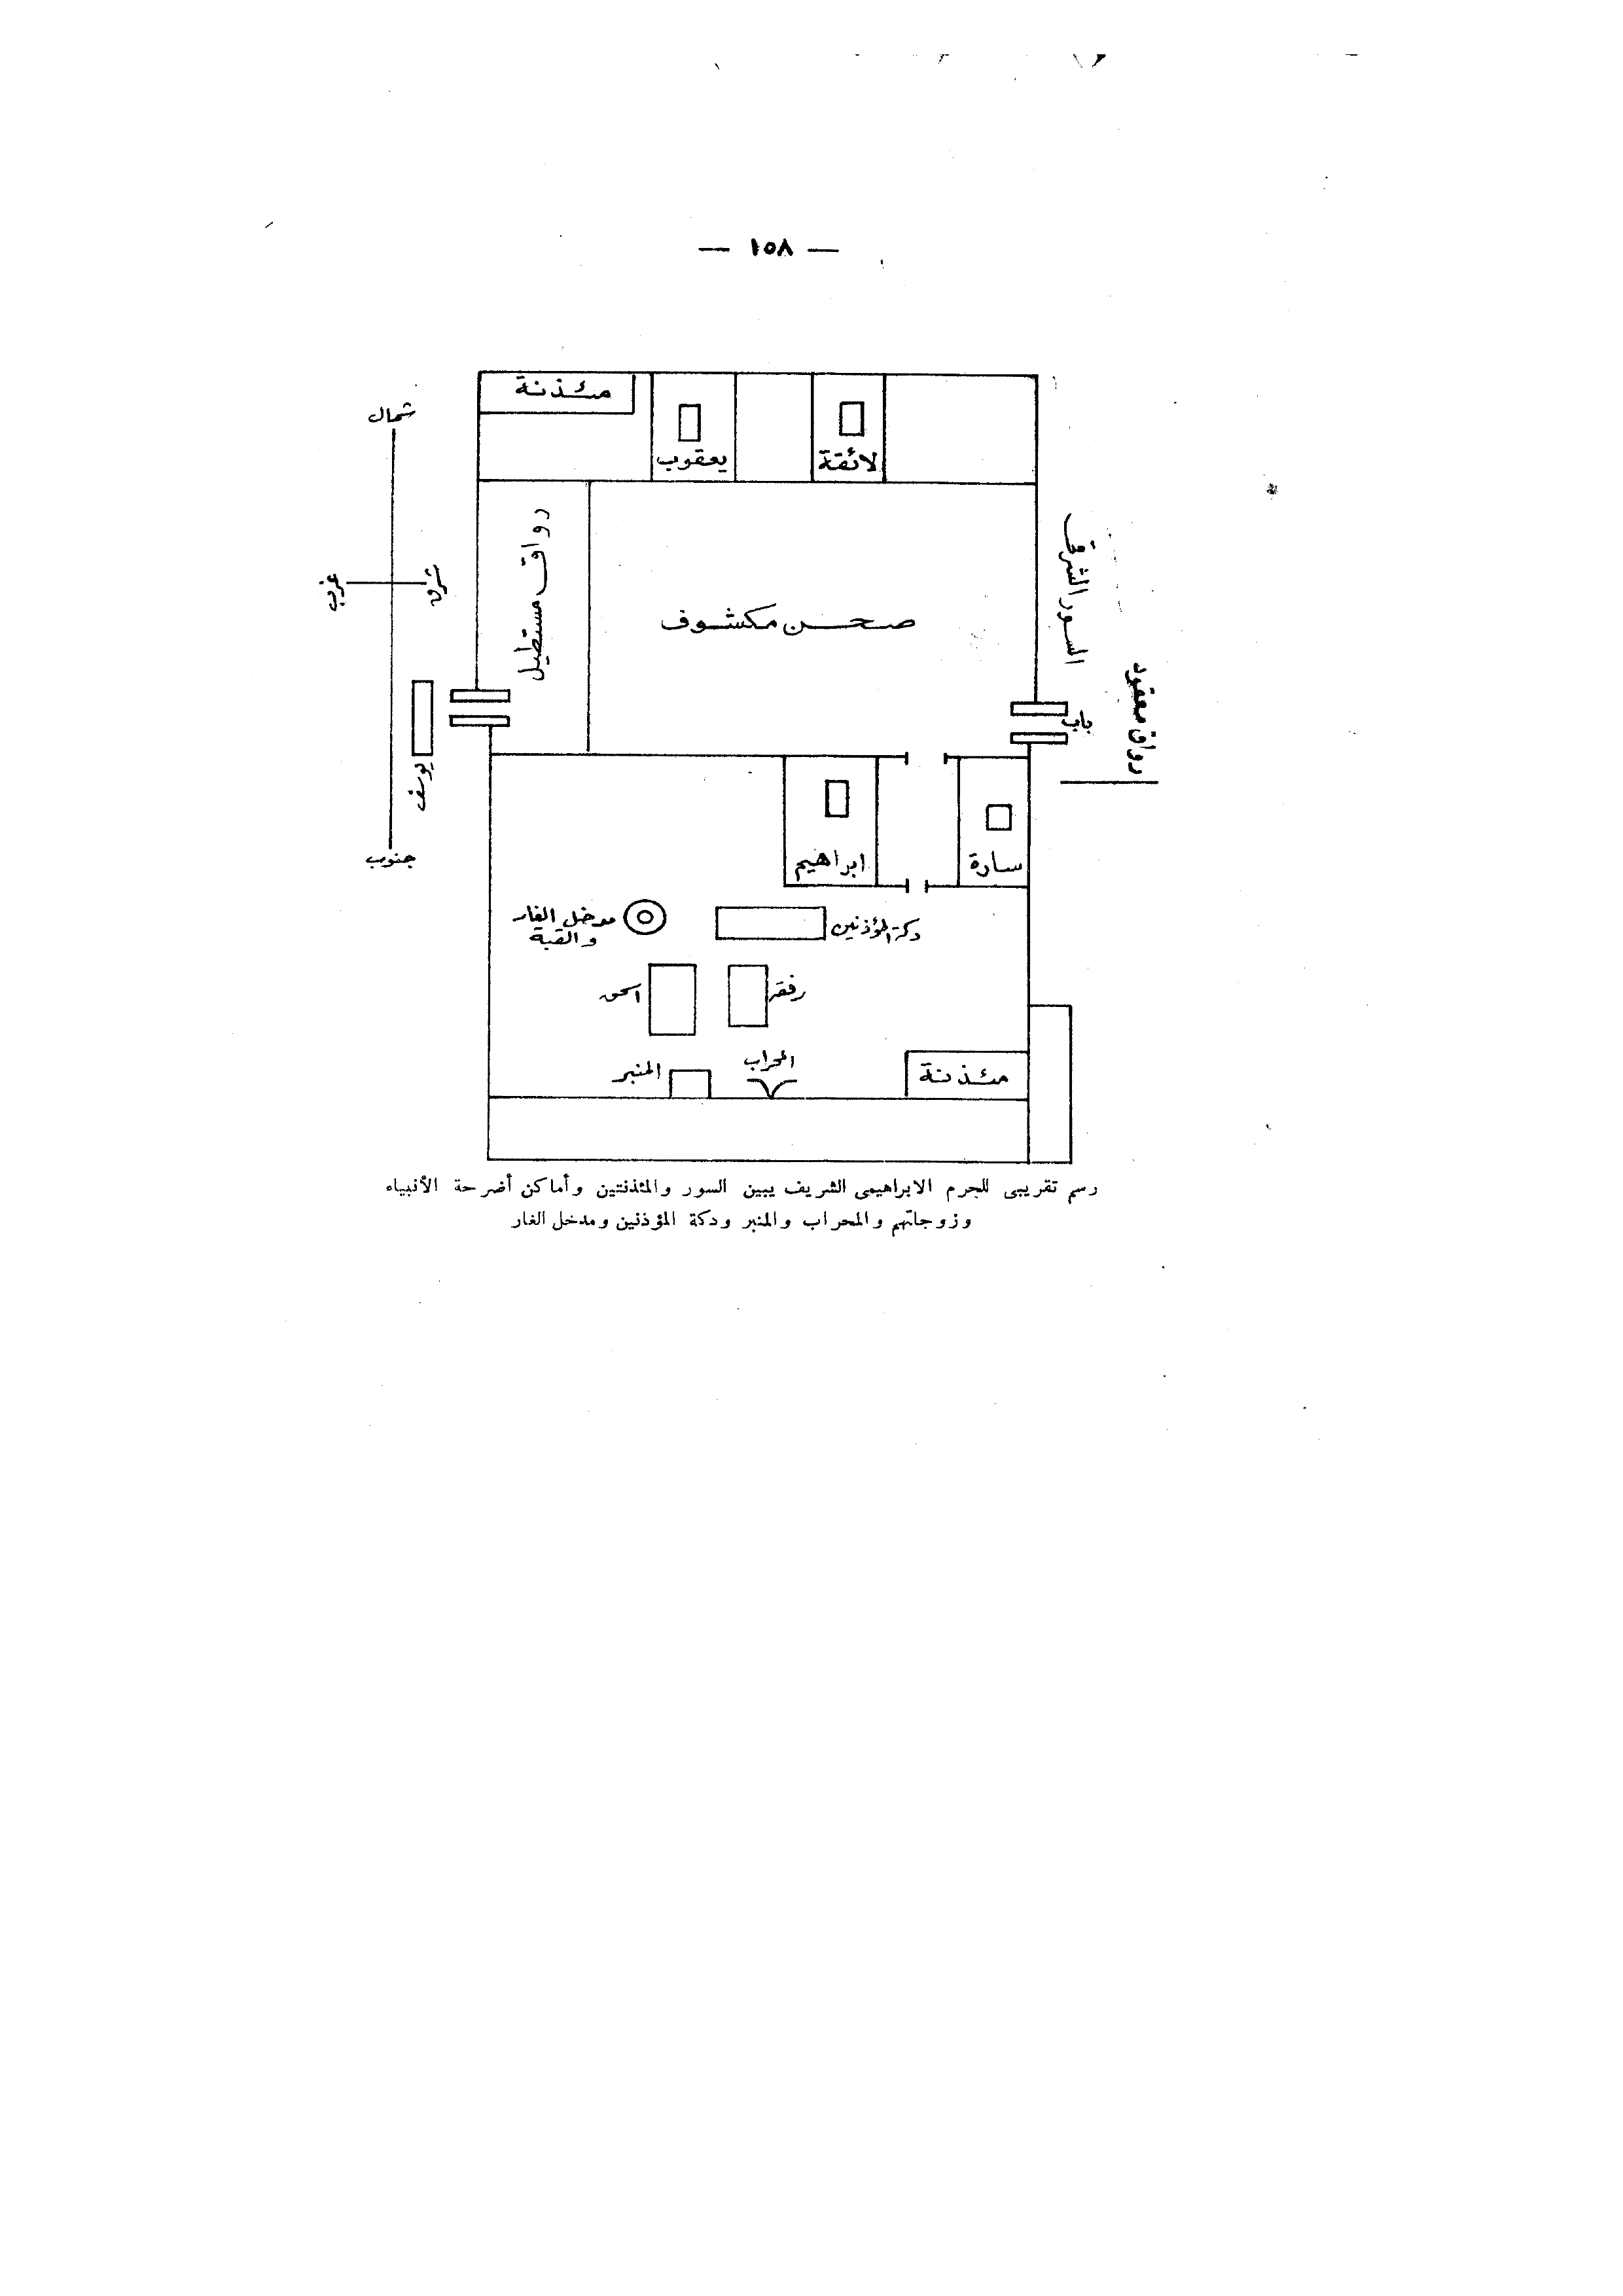 — ١٥٨ —
مئذنة
يعقوب
لائقة
شمال
غرب
شرق
جنوب
رواق مستطيل
صحن مكشوف
السور الشرقى
رواق معقود
باب
يوسف
ابراهيم
سارة
مدخل الغار
والقبة
دكة المؤذنين
اسحق
رفقه
المنبر
المحراب
مئذنة
رسم تقريبى للحرم الابراهيمى الشريف يبين السور والمئذنتين وأماكن أضرحة الأنبياء
وزوجاتهم والمحراب والمنبر ودكة المؤذنين ومدخل الغار